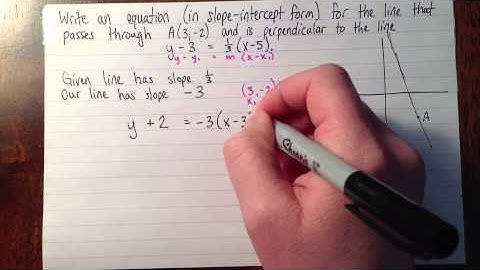 Write an equation (in slope-intercept form) for the line that
passes through A(3,-2) and is perpendicular to the line
y - 3 = 1/3 (x-5).
y - y₁ = m (x-x₁)
Given line has slope 1/3
Our line has slope -3
(3,-2)
x₁
y + 2 = -3(x-3
A
Sharpie